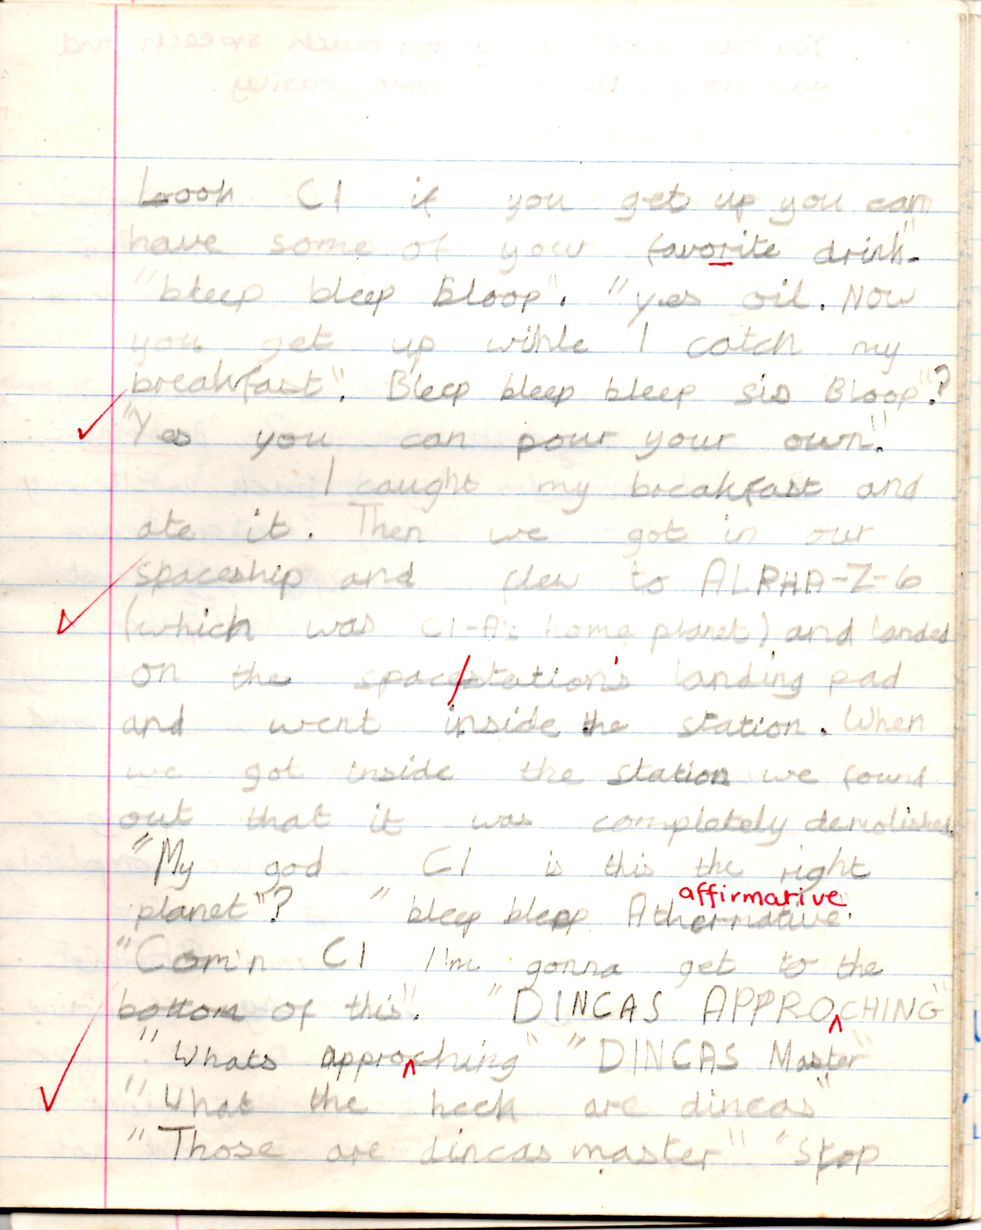 Look C1 if you get up you can
have some of your favorite drink"
"bleep bleep Bloop". "yes oil. Now
you get up wihle I catch my
breakfast". Bleep bleep bleep sis Bloop"?
"Yes you can pour your own."
I caught my breakfast and
ate it. Then we got in our
spaceship and flew to ALPHA-Z-6
(which was C1-A's home planet) and landed
on the space/station's landing pad
and went inside the station. When
we got inside the station we found
out that it was completely demolished
"My god C1 is this the right
affirmative
planet"? "bleep bleep Athernative"
"Com'n C1 I'm gonna get to the
bottom of this". "DINCAS APPROCHING"
"Whats approching" "DINCAS Master"
"What the heck are dincas"
"Those are dincas master" "Stop